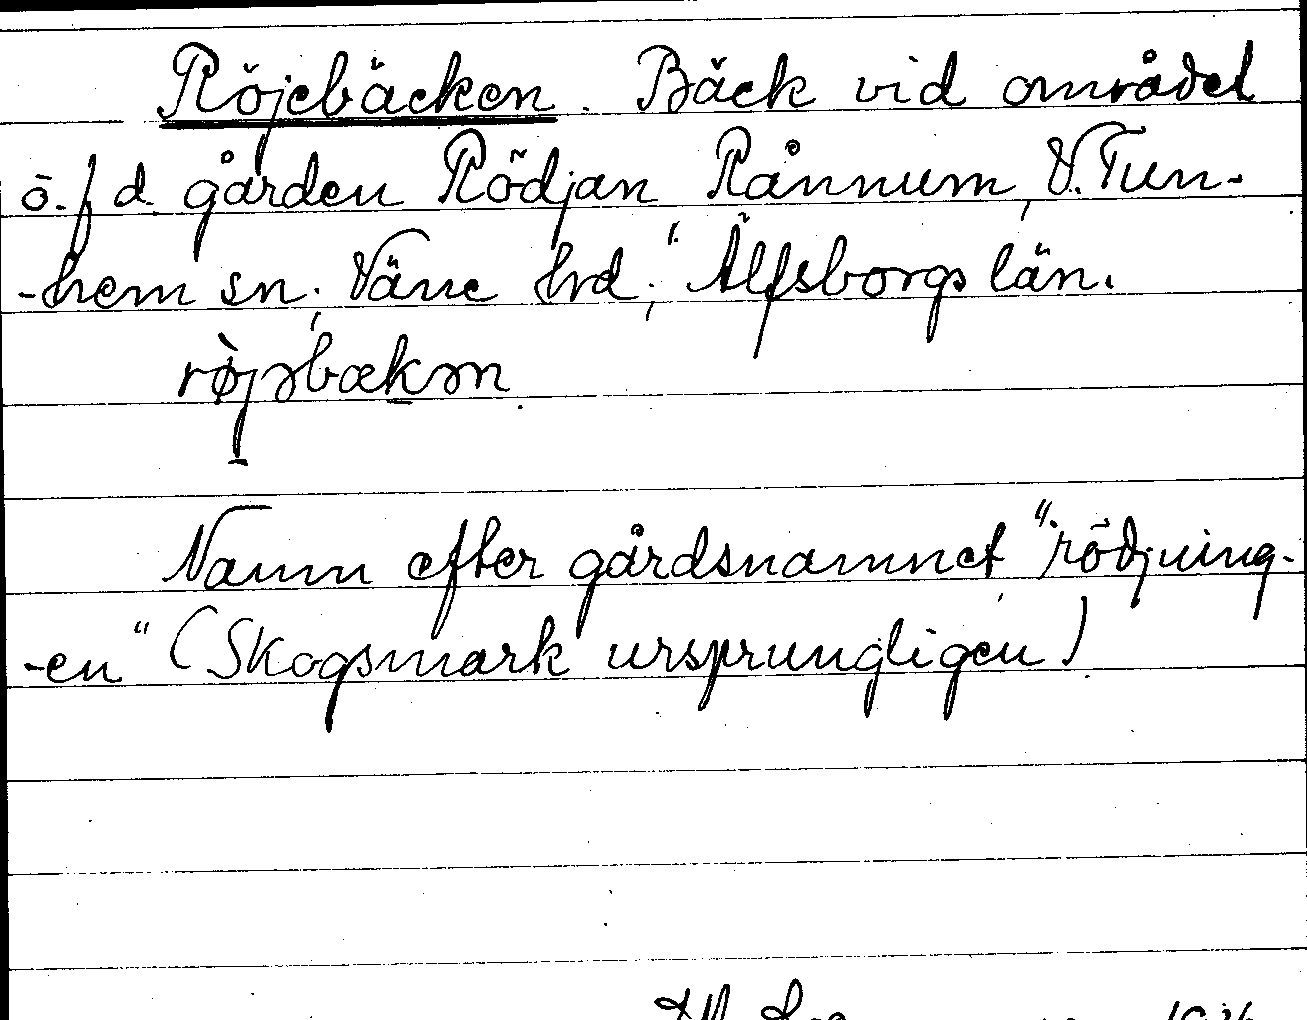 Röjebäcken. Bäck vid området
ö. f d. gården Rödjan, Rånnum, V. Tun-
-hem sn; Väne hd; Älfsborgs län.
rø̀jəbækən.
Namn efter gårdsnamnet, "rödjning-
-en" (Skogsmark ursprungligen).